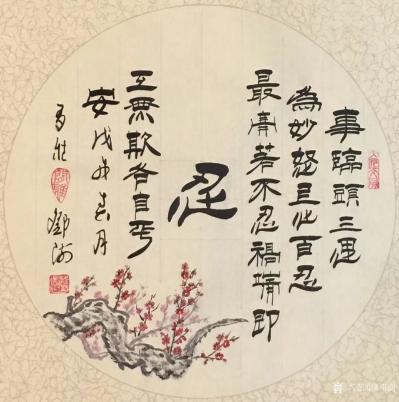 事臨頭三思
為妙怒上心百忍
最高若不忍禍端即
忍
互無欺各自平
安戊戌春月